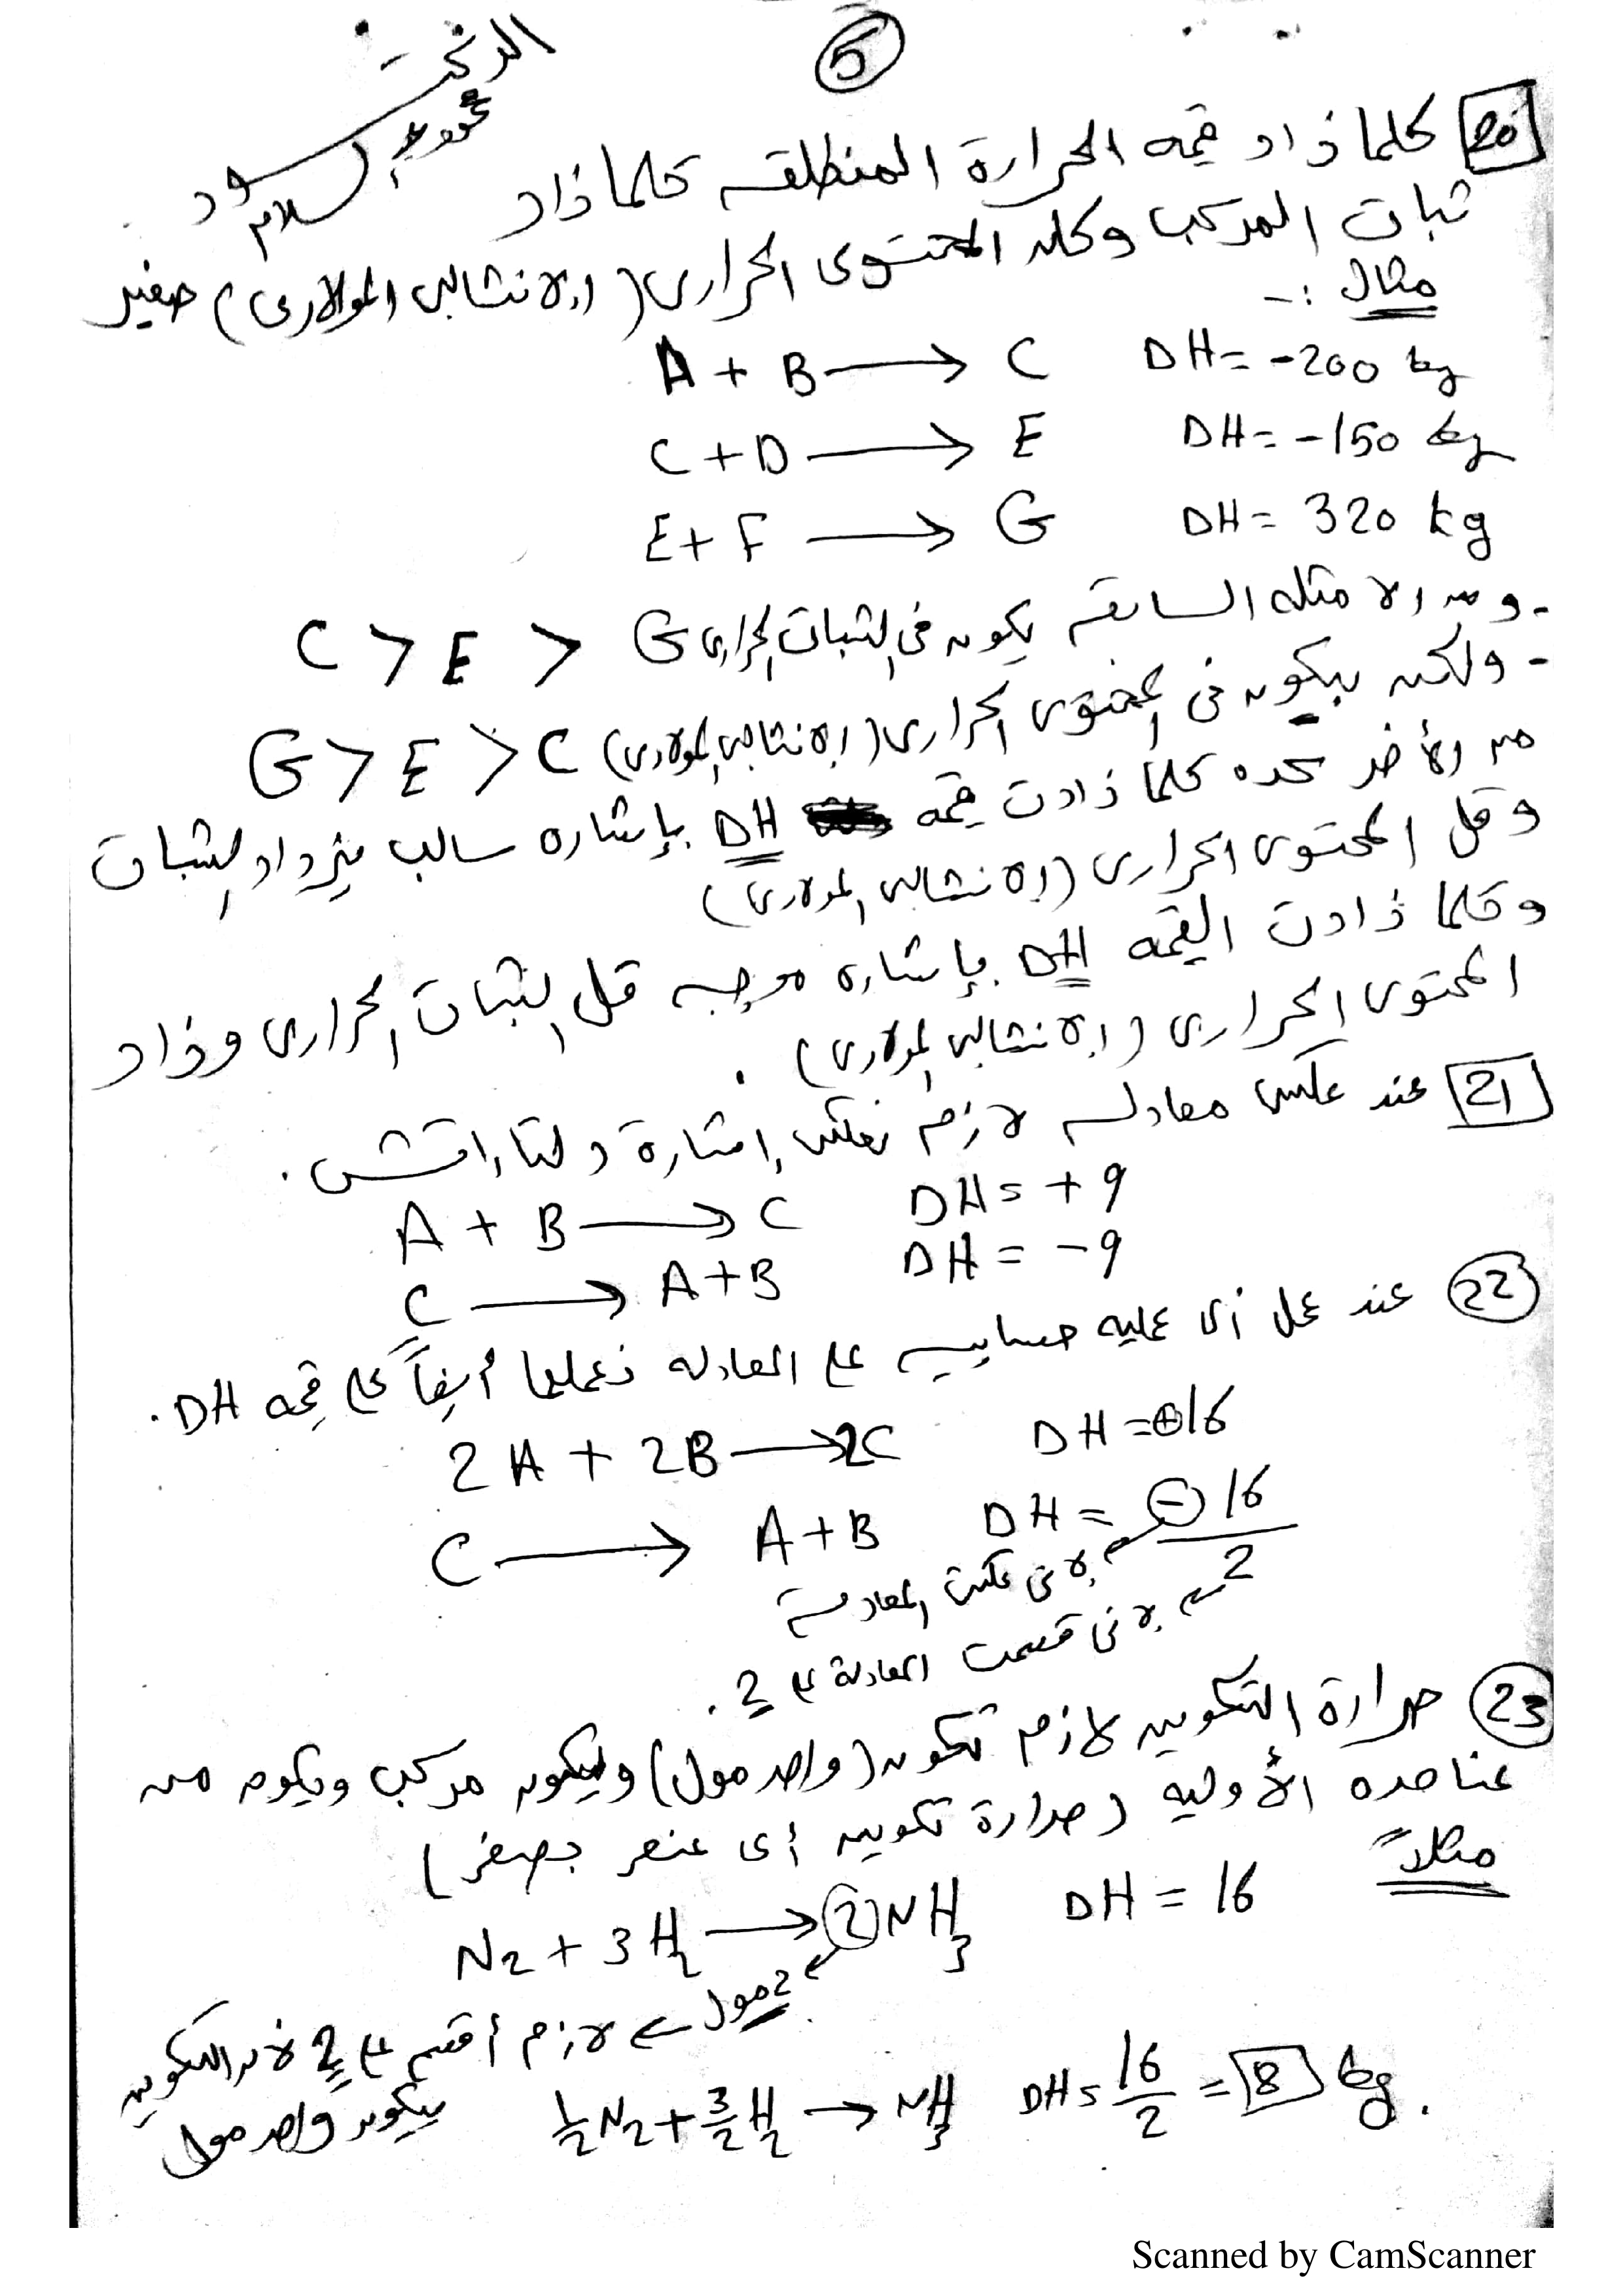 5
20 كلما ذاد قيمه الحرارة المنطلقه كلما ذاد
ثبات المركب وكان المحتوى الحرارى (الانثالبى المولارى) صغير
مثال :-
A + B → C DH = -200 kg
C + D → E DH = -150 kg
E + F → G DH = 320 kg
- ومن الامثله السابقه يكون فى الثبات الحرارى C > E > G
- ولكن بيكون فى المحتوى الحرارى (الانثالبى المولارى) G > E > C
من الأخر كده كلما ذادت قيمه DH بإشاره سالب يزداد الثبات
وقل المحتوى الحرارى (الانثالبى المولارى)
وكلما ذادت القيمه DH بإشاره موجبه قل الثبات الحرارى وذاد
المحتوى الحرارى (الانثالبى المولارى).
21 عند عكس معادله لازم نعكس إشارة دلتا اتش.
A + B → C DH = + 9
C → A + B DH = - 9
22 عند عمل أى عمليه حسابيه على المعادله نعملها أيضاً على قيمه DH.
2A + 2B → 2C DH = + 16
C → A + B DH = - 16 / 2
لانى عكست المعادلة
لانى قسمت المعادلة على 2.
23 حرارة التكوين لازم تكون (واحد مول) ويكون مركب ويكون من
عناصره الأوليه (حرارة تكوين أى عنصر بصفر)
مثلاً
N2 + 3H2 → 2NH3 DH = 16
2مول ← لازم أقسم على 2 لان التكوين
بيكون واحد مول
1/2 N2 + 3/2 H2 → NH3 DH = 16/2 = 8 kg.
Scanned by CamScanner